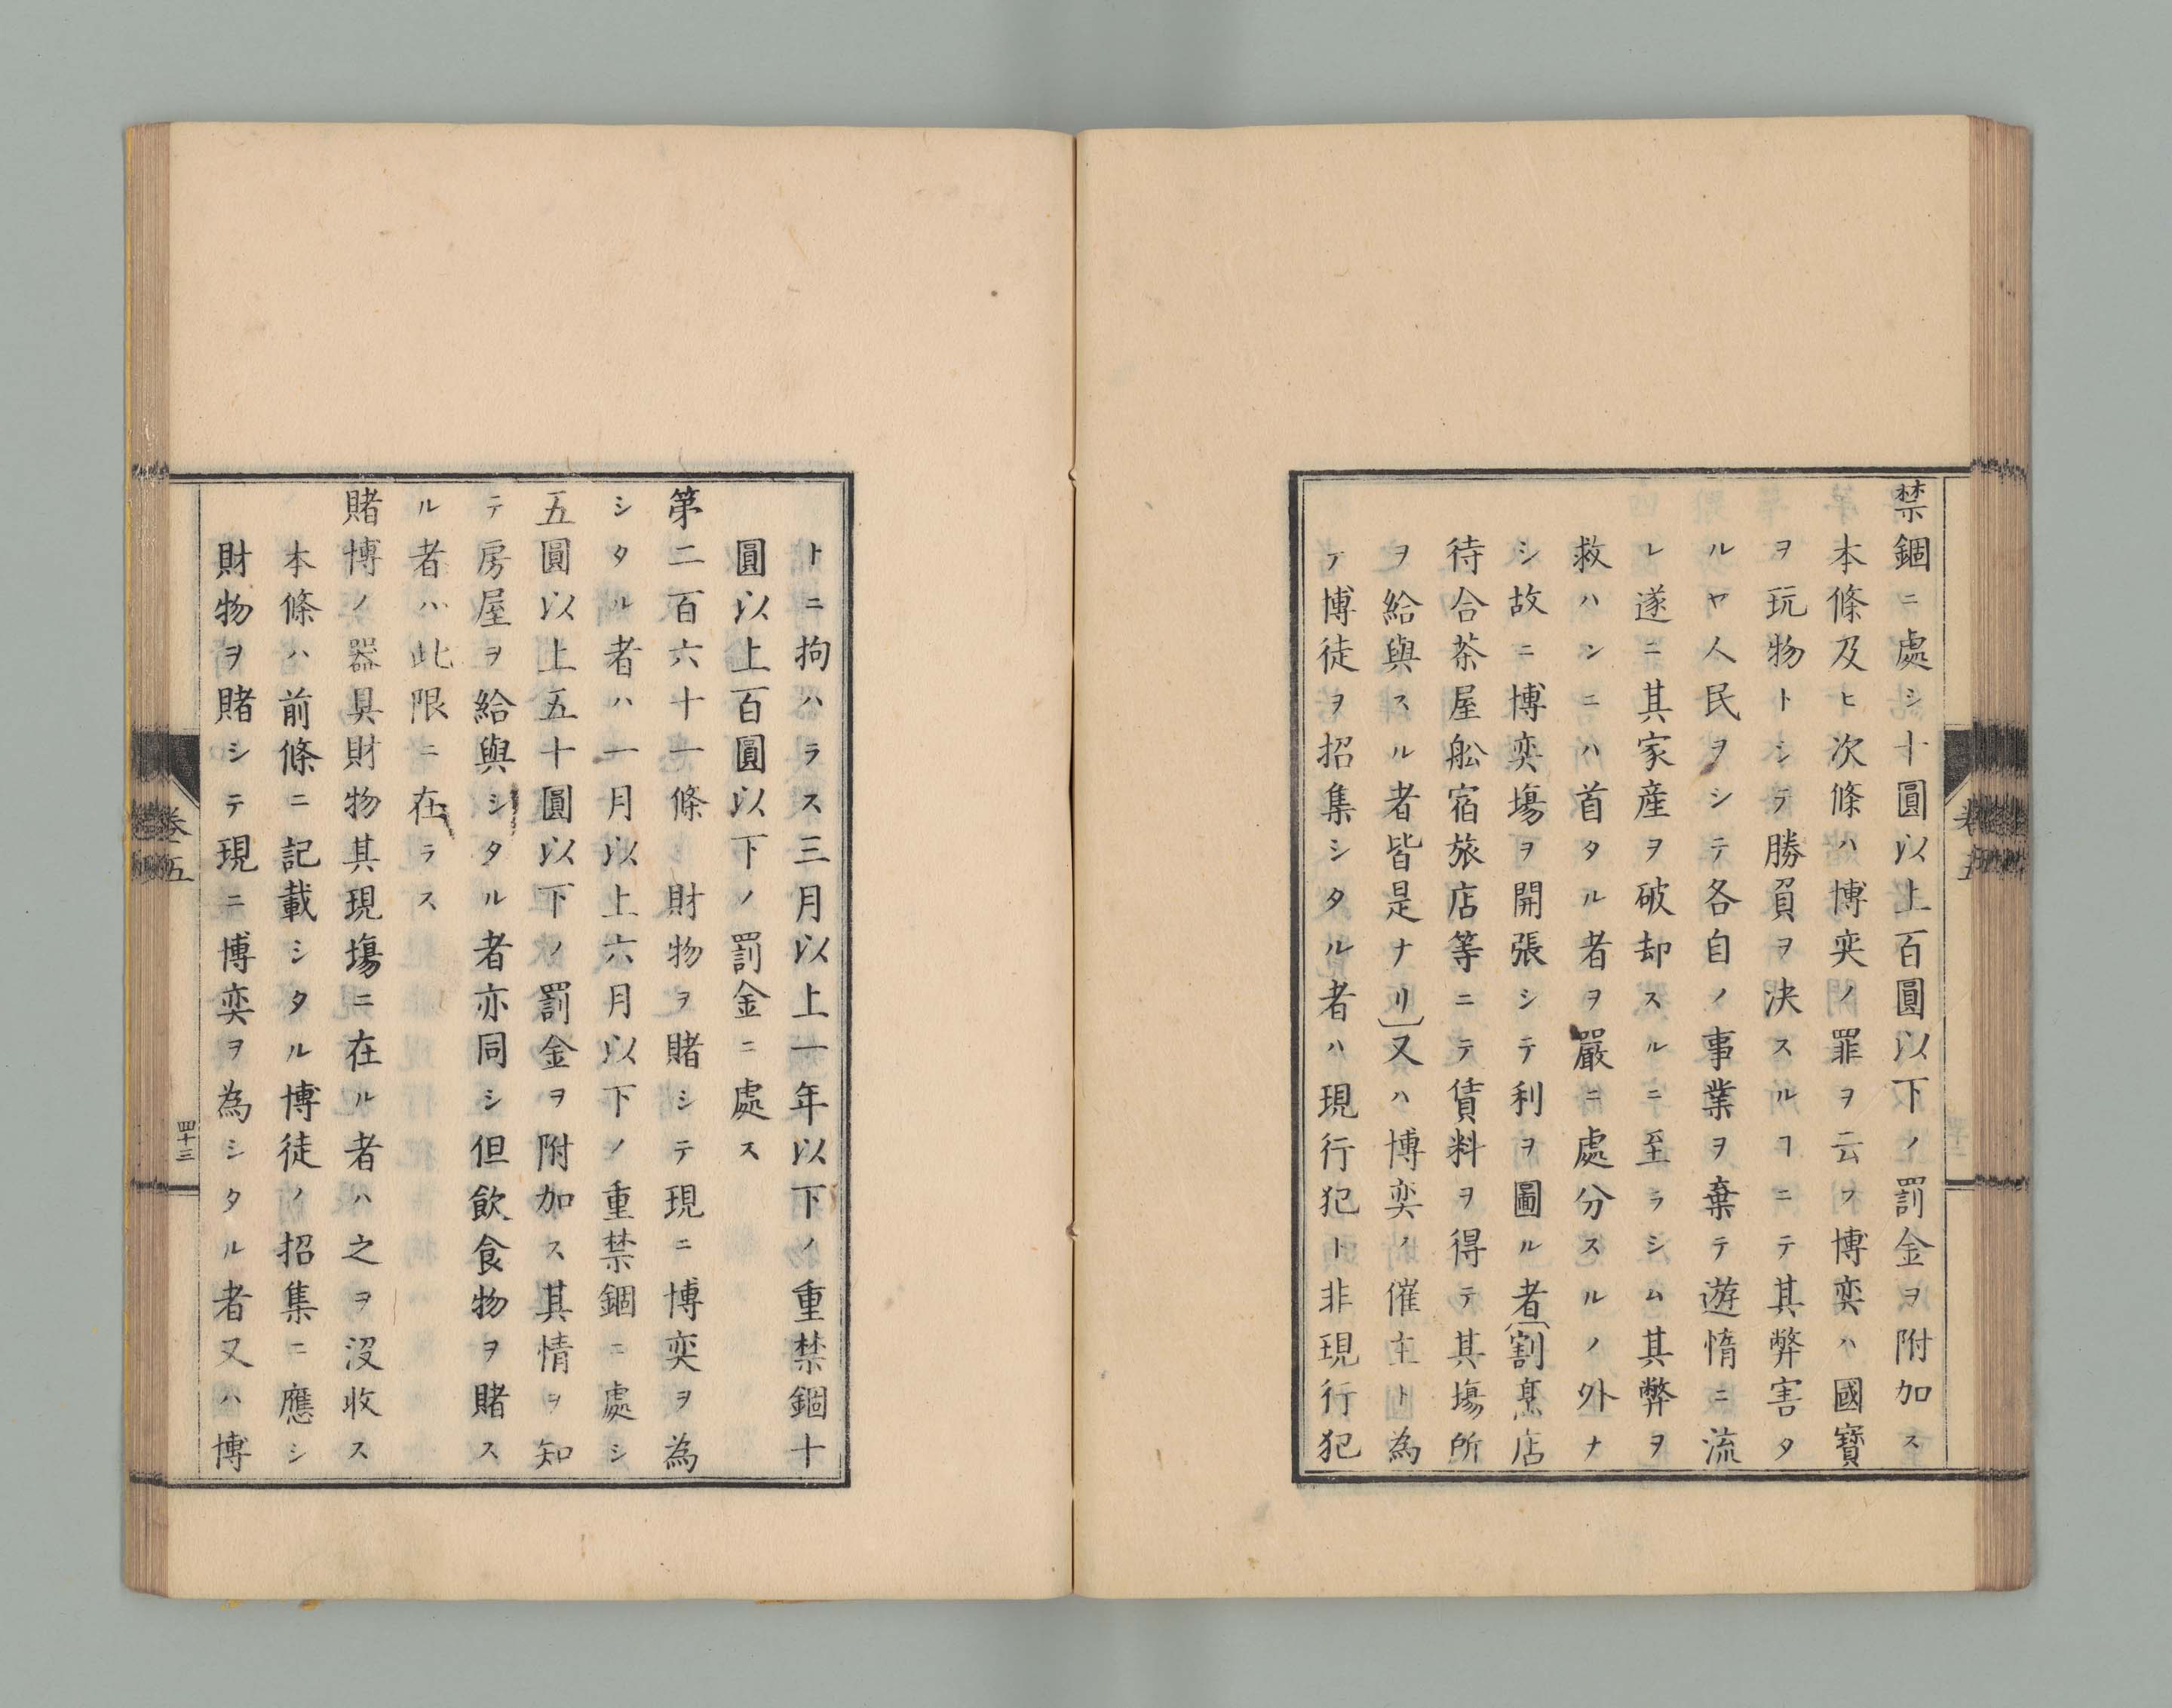 禁錮ニ處シ十圓以上百圓以下ノ罰金ヲ附加ス
本條及ヒ次條ハ博奕ノ罪ヲ云フ博奕ハ國寳
ヲ玩物トシテ勝負ヲ決スルヿニテ其弊害タ
ルヤ人民ヲシテ各自ノ事業ヲ棄テ遊惰ニ流
レ遂ニ其家産ヲ破却スルニ至ラシム其弊ヲ
救ハンニハ首タル者ヲ嚴ニ處分スルノ外ナ
シ故ニ博奕塲ヲ開張シテ利ヲ圖ル者(割烹店
待合茶屋舩宿旅店等ニテ賃料ヲ得テ其塲所
ヲ給與スル者皆是ナリ)又ハ博奕ノ催主ト為
テ博徒ヲ招集シタル者ハ現行犯ト非現行犯
トニ拘ハラス三月以上一年以下ノ重禁錮十
圓以上百圓以下ノ罰金ニ處ス
第二百六十一條 財物ヲ賭シテ現ニ博奕ヲ為
シタル者ハ一月以上六月以下ノ重禁錮ニ處シ
五圓以上五十圓以下ノ罰金ヲ附加ス其情ヲ知
テ房屋ヲ給與シタル者亦同シ但飲食物ヲ賭ス
ル者ハ此限ニ在ラス
賭博ノ器具財物其現塲ニ在ル者ハ之ヲ沒收ス
本條ハ前條ニ記載シタル博徒ノ招集ニ應シ
財物ヲ賭シテ現ニ博奕ヲ為シタル者又ハ博
卷五
四十三